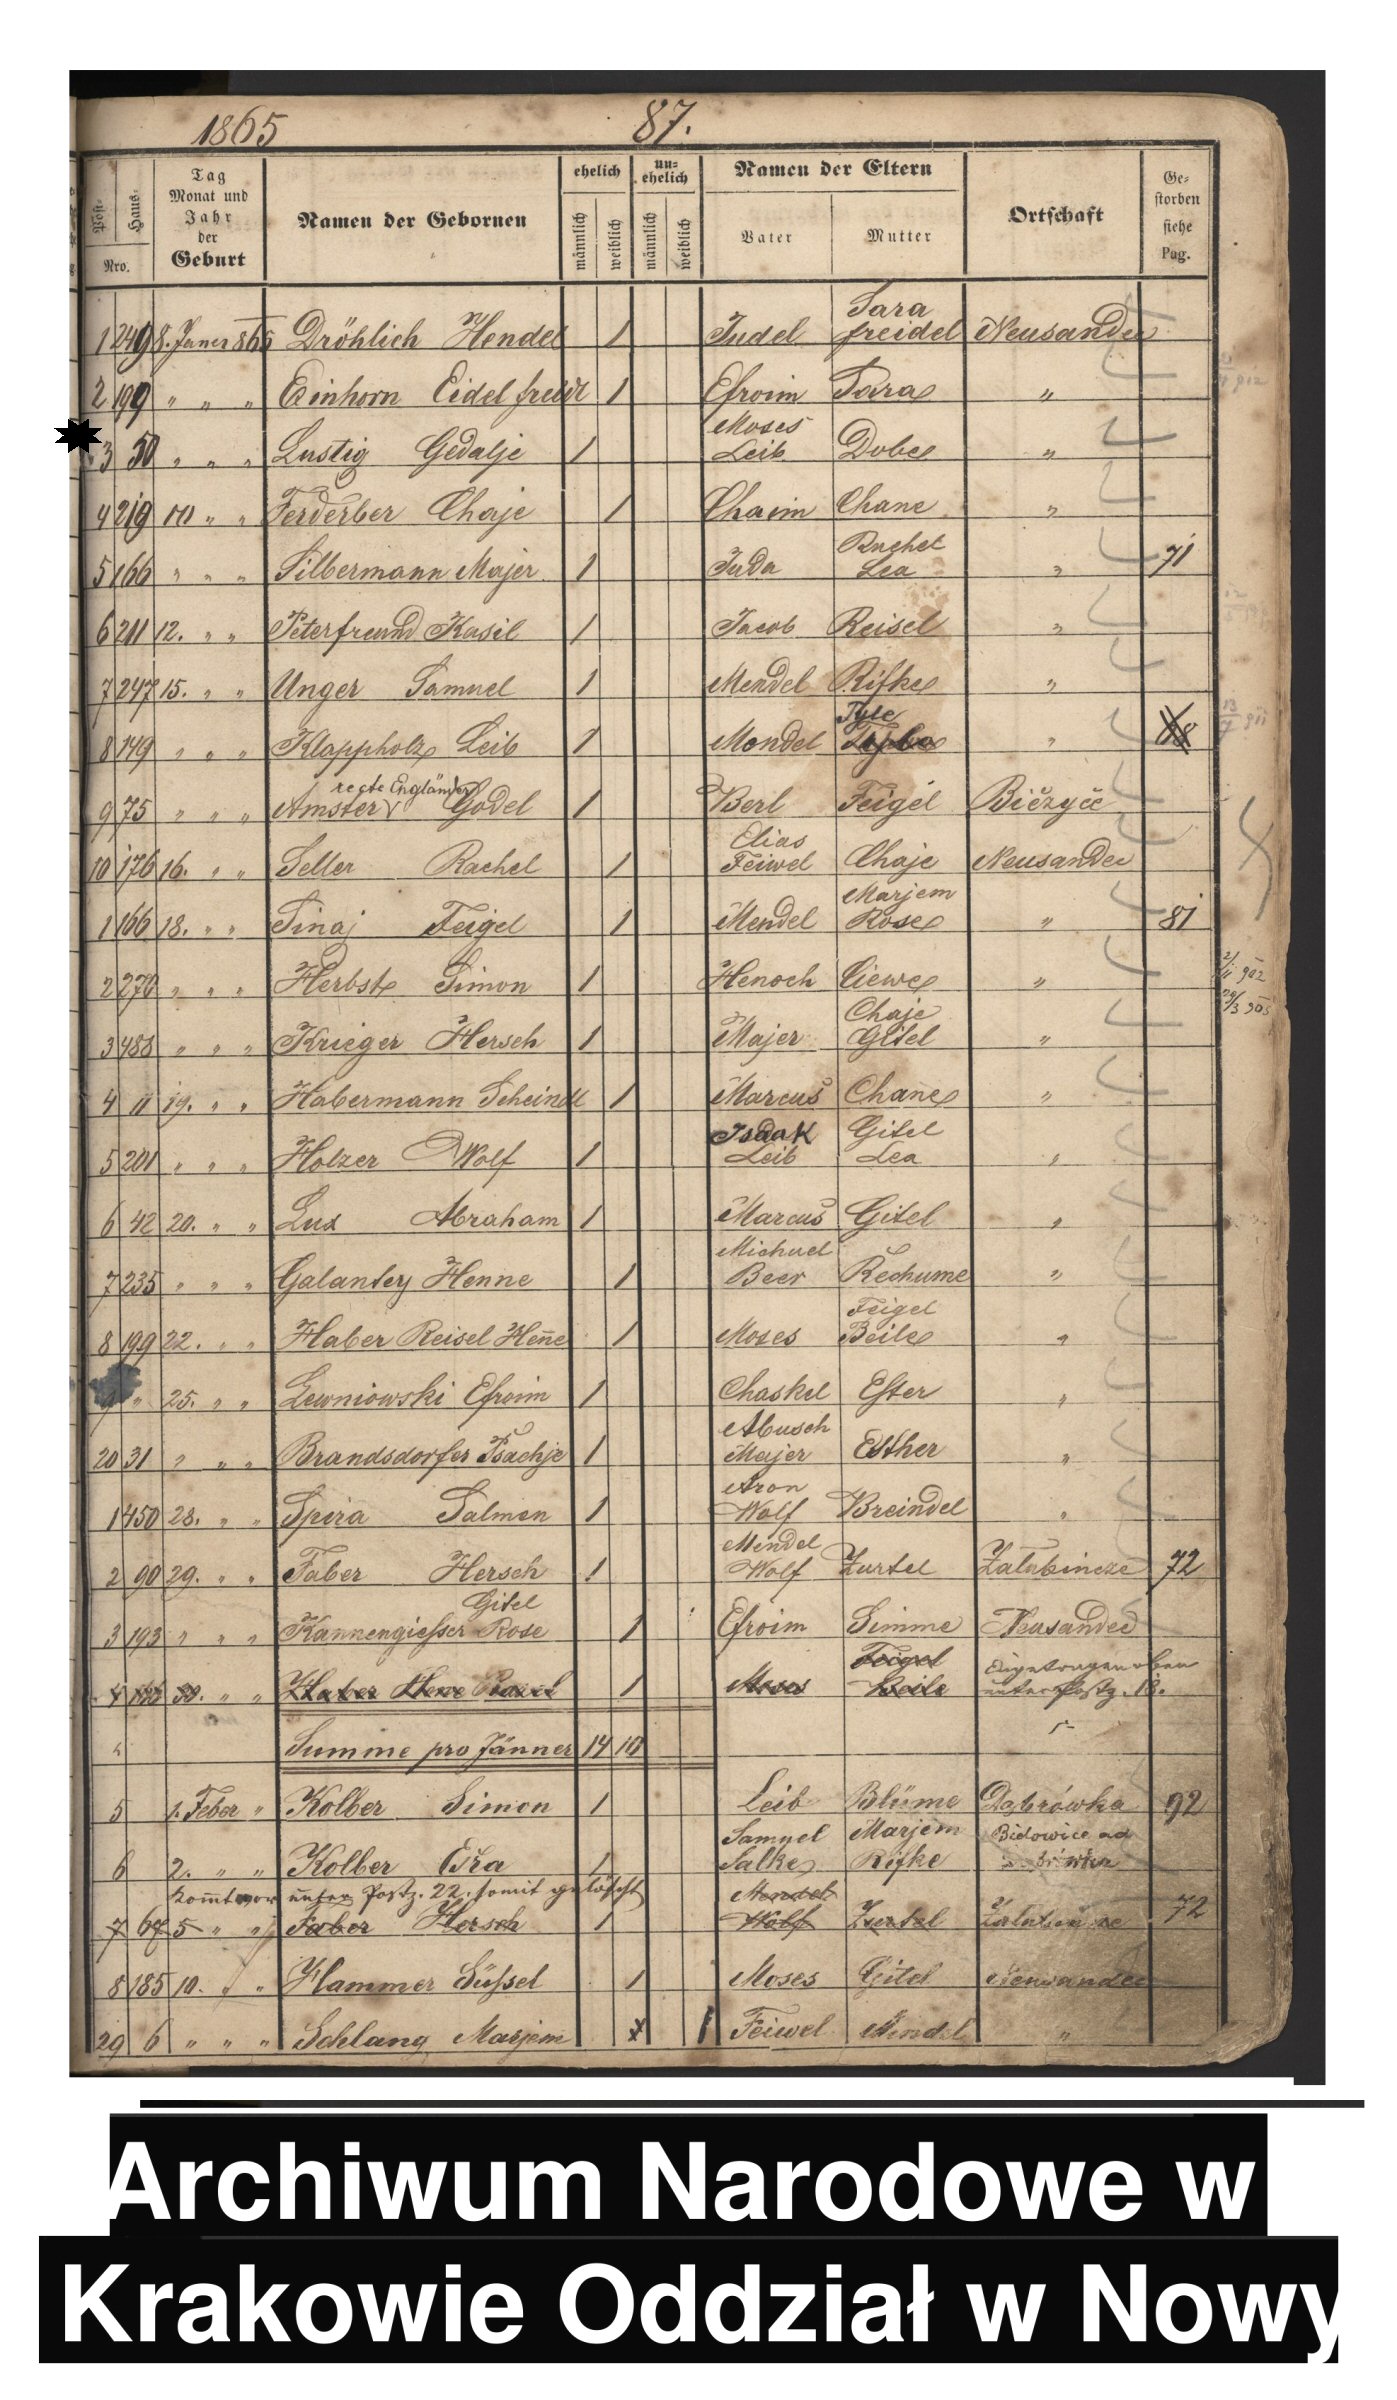 1865 87.
Post- Haus- Nro. Tag Monat und Jahr der Geburt Namen der Gebornen ehelich männlich weiblich un-ehelich männlich weiblich Namen der Eltern Vater Mutter Ortschaft Ge-storben siehe Pag.
1 249 8. Janer 865 Dröhlich Hendel 1 Judel Sara freidel Neusandec
2 199 " " " Einhorn Eidel freidl 1 Efroim Sara "
3 50 " " " Lustig Gedalje 1 Moses Leib Dobe "
4 219 10 " " Ferderber Chaje 1 Chaim Chane "
5 166 " " " Silbermann Majer 1 Juda Rachel Lea " 71
6 211 12. " " Peterfreund Kasil 1 Jacob Reisel "
7 247 15. " " Unger Samuel 1 Mendel Rifke "
8 149 " " " Klappholz Leib 1 Mendel Tyle "
9 75 " " " Amster recte Engländer Godel 1 Berl Feigel Biczyce
10 176 16. " " Seller Rachel 1 Elias Feiwel Chaje Neusandec
1 166 18. " " Sinaj Feigel 1 Mendel Marjem Rose " 81
2 270 " " " Herbst Simon 1 Henoch Ciewe "
3 488 " " " Krieger Hersch 1 Majer Chaje Gitel "
4 11 19. " " Habermann Scheindl 1 Marcus Chane "
5 201 " " " Holzer Wolf 1 Isaak Leib Gitel Lea "
6 42 20. " " Lux Abraham 1 Marcus Gitel "
7 235 " " " Galanter Henne 1 Michael Beer Rechume "
8 199 22. " " Haber Reisel Hene 1 Moses Feigel Beile "
9 " 25. " " Lewniowski Efroim 1 Chaskel Ester "
20 31 " " " Brandsdorfer Psachje 1 Abusch Majer Esther "
1 450 28. " " Spira Salmen 1 Aron Wolf Breindel "
2 90 29. " " Faber Hersch 1 Mendel Wolf Zurtel Zalubincze 72
3 193 " " " Kannengiesser Gitel Rose 1 Efroim Simme Neusandec
4 30. " " Haber Hene 1 Moses Feigel Beile Eingetragen oben unter Postz. 18.
Summe pro Jänner 14 10
5 1. Feber " Kolber Simon 1 Leib Blüme Dąbrówka 92
6 2. " " Kolber 1 Samuel Salke Marjem Rifke Bidowice ad
Kommt vor unter Postz. 22. somit gelöscht
7 67 5 " " Faber Hersch 1 Mendel Wolf Zurtel 72
8 185 10. " " Hammer Süssel 1 Moses Gitel Neusandec
29 6 " " " Schlang Marjem 1 Feiwel Hendel "
Archiwum Narodowe w
Krakowie Oddział w Nowy